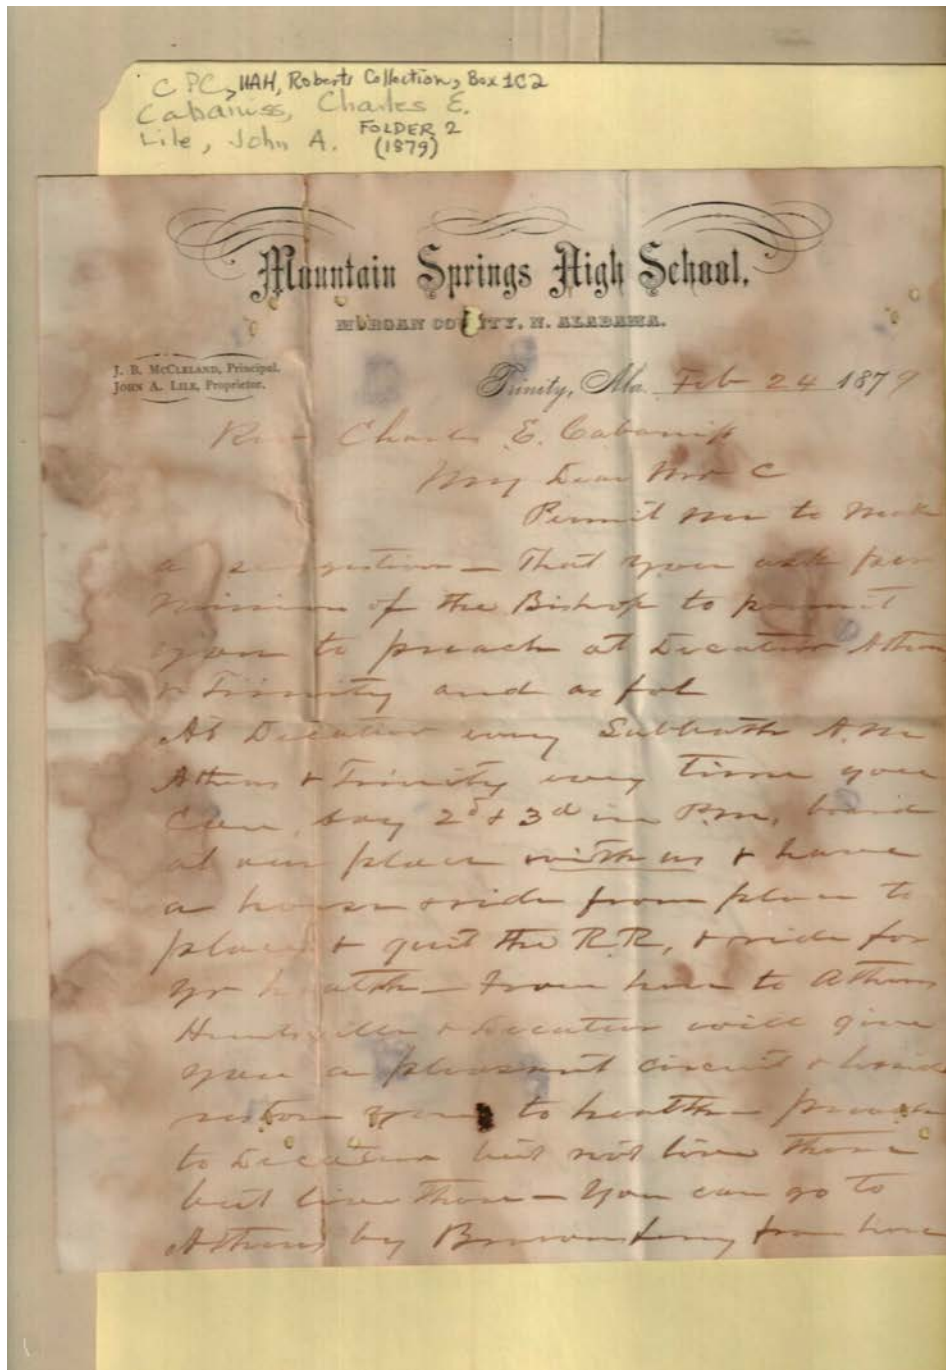 CPC, UAH, Roberts Collection, Box 1C2
Cabaniss, Charles E.
FOLDER 2
Lile, John A. (1879)
Mountain Springs High School,
MORGAN COUNTY, N. ALABAMA.
J. B. McCLELAND, Principal.
JOHN A. LILE, Proprietor.
Trinity, Ala. Feb 24 1879
Rev Charles E. Cabaniss
My Dear Mr C
Permit me to make
a suggestion — That you ask per
mission of the Bishop to permit
you to preach at Decatur Athens
& Trinity and as fol
At Decatur every Sabbath A.M
Athens & Trinity every time you
can, say 2d & 3d in P.M, board
at our place with us & have
a horse & ride from place to
place & quit the R.R, & ride for
yr health — From here to Athens
Huntsville & Decatur will give
you a pleasant circuit &
restore you to health — preach
to Decatur but not live there
but live there — You can go to
Athens by Browns ferry from here